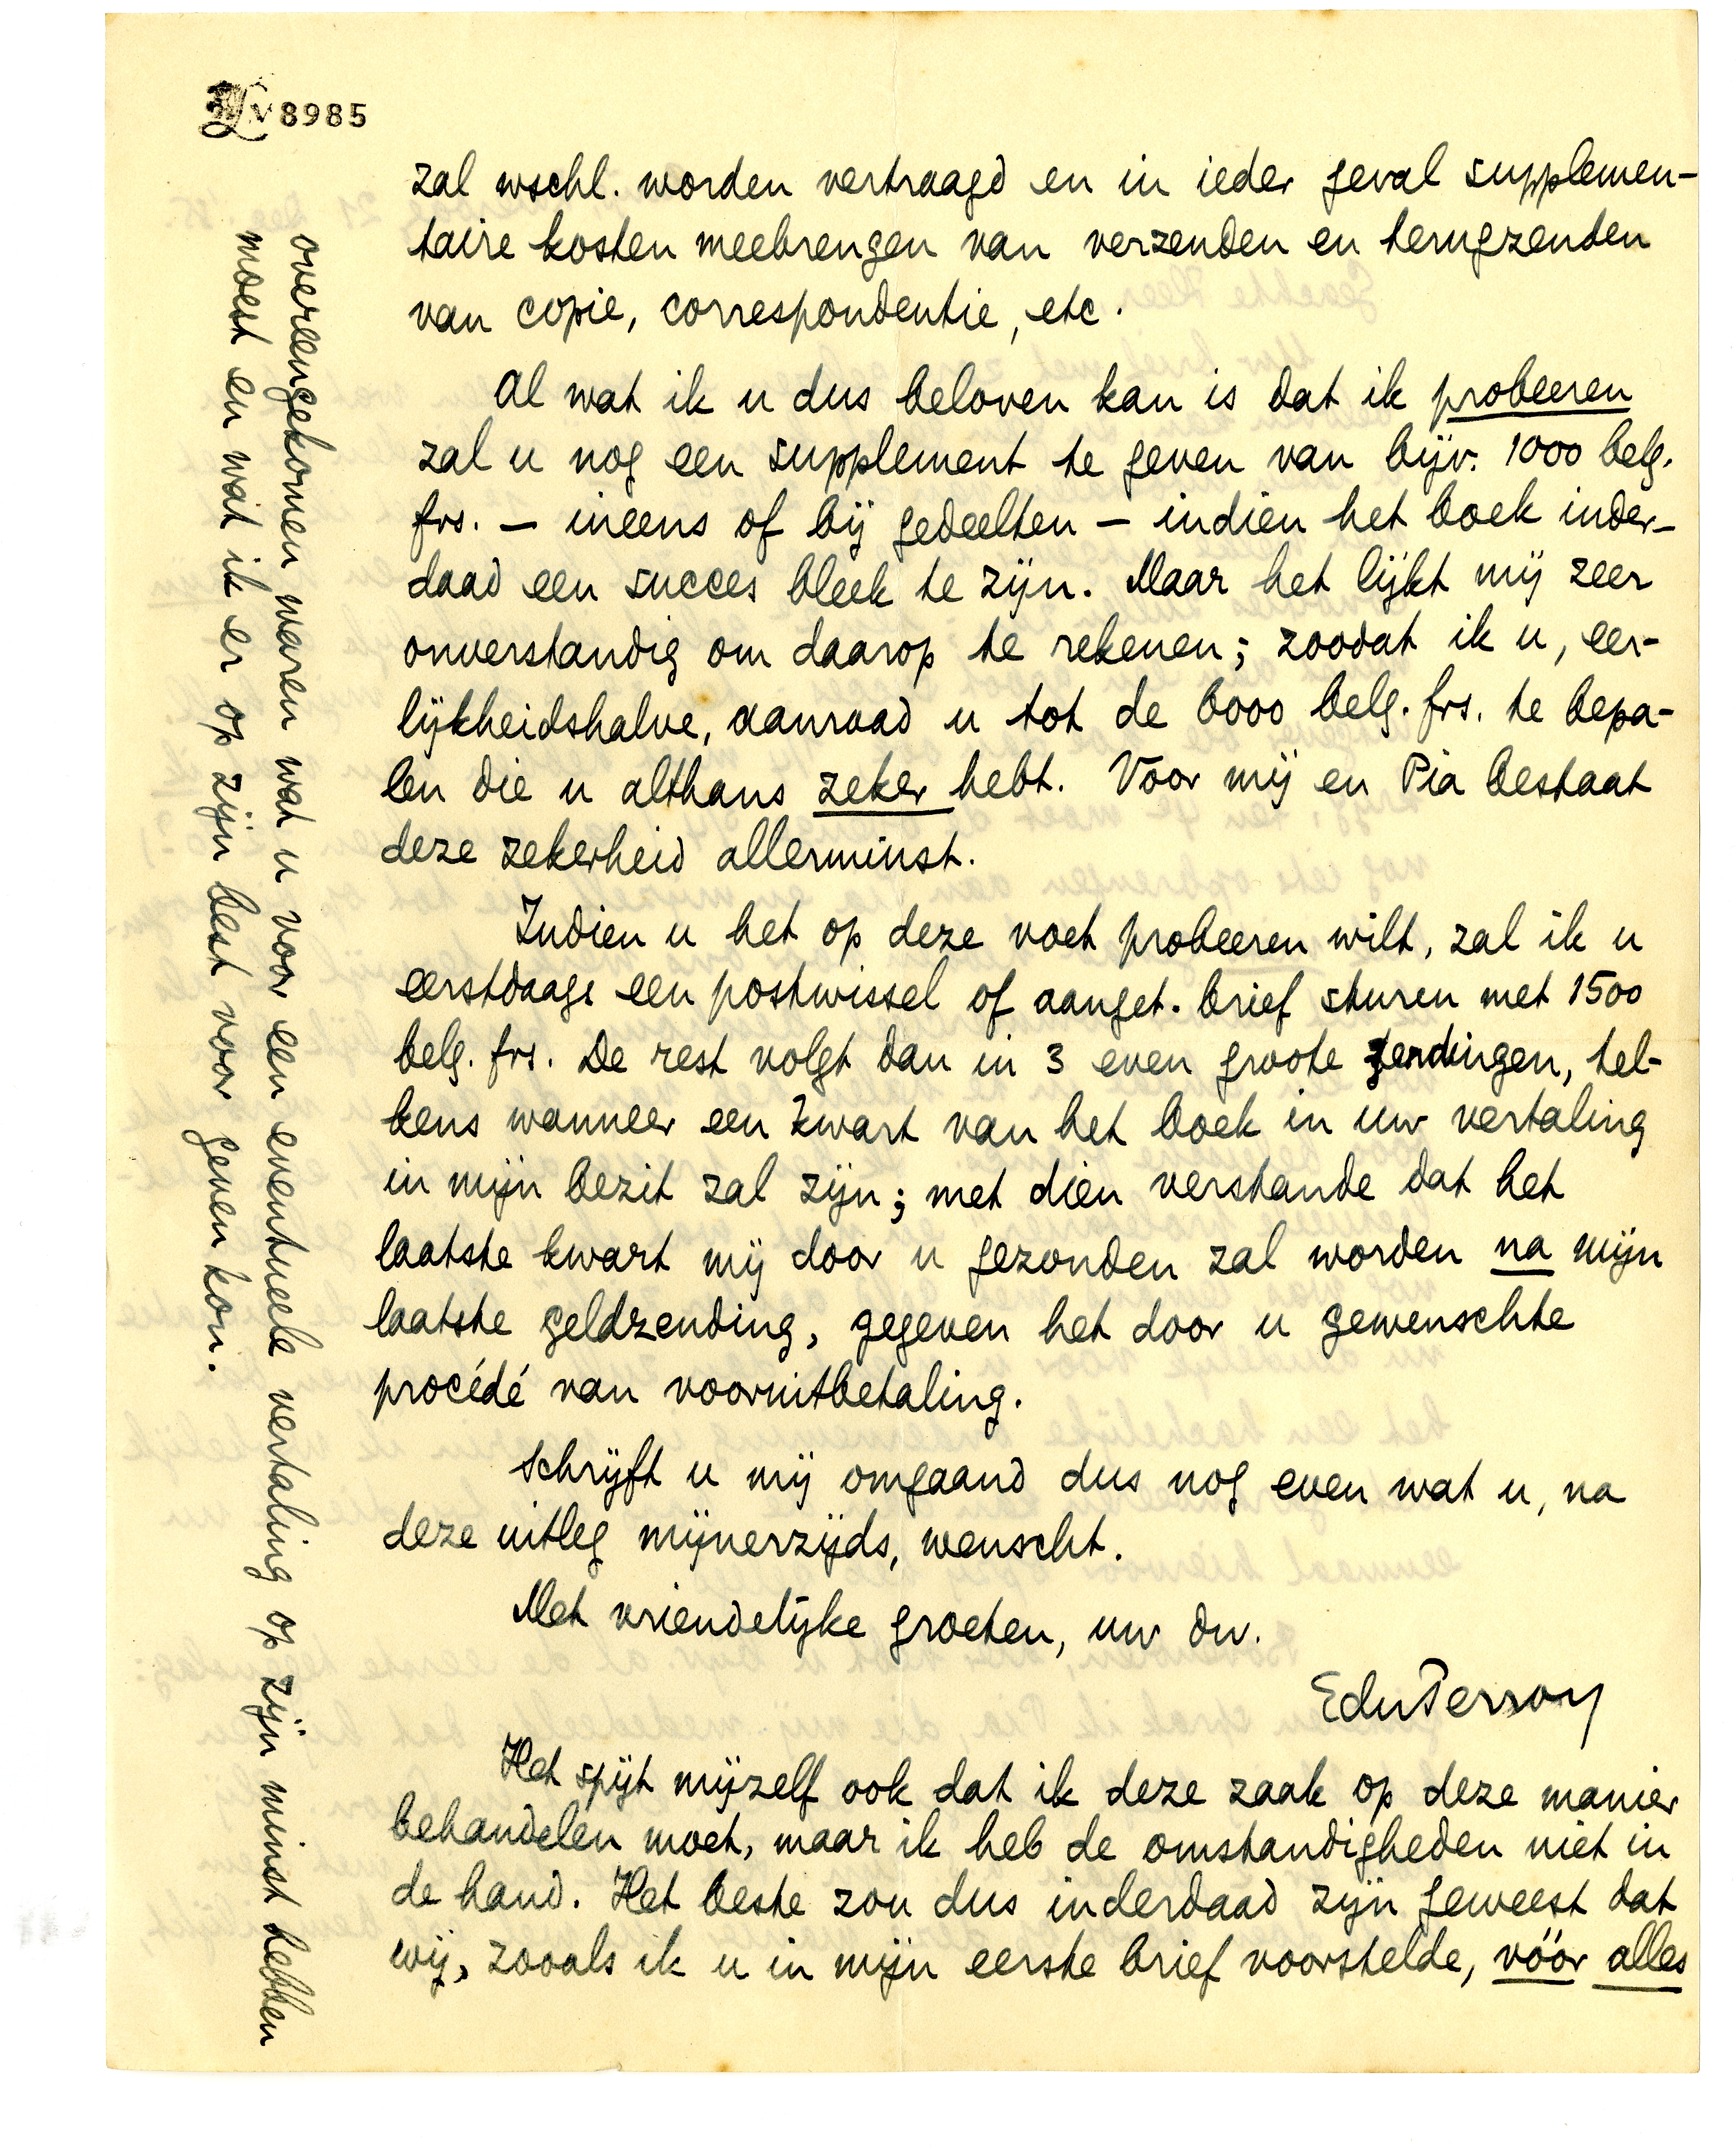 v8985
zal wschl. worden vertraagd en in ieder geval supplemen-
taire kosten meebrengen van verzenden en terugzenden
van copie, correspondentie, etc.
Al wat ik u dus beloven kan is dat ik probeeren
zal u nog een supplement te geven van bijv. 1000 belg.
frs. — ineens of bij gedeelten — indien het boek inder-
daad een succes bleek te zijn. Maar het lijkt mij zeer
onverstandig om daarop te rekenen; zoodat ik u, eer-
lijkheidshalve, aanraad u tot de 6000 belg. frs. te bepa-
len die u althans zeker hebt. Voor mij en Pia bestaat
deze zekerheid allerminst.
Indien u het op deze voet probeeren wilt, zal ik u
eerstdaags een postwissel of aanget. brief sturen met 1500
belg. frs. De rest volgt dan in 3 even groote zendingen, tel-
kens wanneer een kwart van het boek in uw vertaling
in mijn bezit zal zijn; met dien verstande dat het
laatste kwart mij door u gezonden zal worden na mijn
laatste geldzending, gegeven het door u gewenschte
procédé van vooruitbetaling.
Schrijft u mij omgaand dus nog even wat u, na
deze uitleg mijnerzijds, wenscht.
Met vriendelijke groeten, uw dw.
EduPerron
Het spijt mijzelf ook dat ik deze zaak op deze manier
behandelen moet, maar ik heb de omstandigheden niet in
de hand. Het beste zou dus inderdaad zijn geweest dat
wij, zooals ik u in mijn eerste brief voorstelde, vóór alles
overeengekomen waren wat u voor een eventueele vertaling op zijn minst hebben
moest en wat ik er op zijn best voor geven kon.